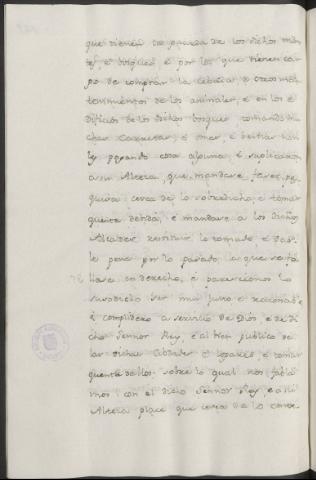 que tienen de guarda de los dichos mon-
tes, é bosques, é por los que tienen car-
go de comprar la cebada, é otros man-
tenimientos de los animales, é en los e-
dificios de los dichos bosques tomando mu-
chas carretas, é omes, é bestias sin
les pagando cosa alguna, é suplicaron
a su Alteza, que mandase facer pes-
quisa cerca de lo sobredicho, é tomar
quenta dende, é mandase a los dichos
Alcaides restituir lo tomado, é dar-
le pena por lo pasado, la que se fa-
llase en derecho, é pareciendonos lo
susodicho ser mui justo é razonable
é complidero a servicio de Dios, é de di-
cho Sennor Rey, é al bien publico de
las dichas Cibdades é logares, é tomar
quenta dellos, sobre lo qual nos fabla-
mos con el dicho Sennor Rey, é a su
Alteza place que cerca de lo conte-